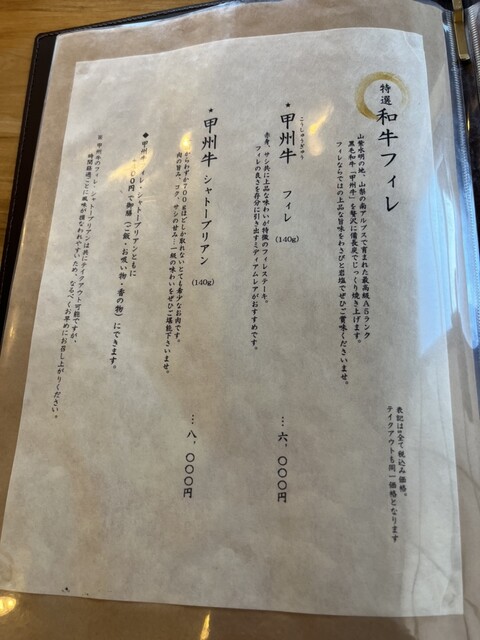 特選 和牛フィレ
山紫水明の地、山梨の南アルプスで育まれた最高級A5ランク
黒毛和牛「甲州牛」を贅沢に備長炭でじっくり焼き上げます。
フィレならではの上品な旨味をわさびと岩塩でぜひご賞味くださいませ。
表記は全て税込み価格。
テイクアウトも同一価格となります
★ 甲州牛 フィレ (140g) … 六、〇〇〇円
こうしゅうぎゅう
赤身、サシ共に上品な味わいが特徴のフィレステーキ。
フィレの良さを存分に引き出すミディアムレアがおすすめです。
★ 甲州牛 シャトーブリアン (140g) … 八、〇〇〇円
からわずか700gほどしか取れない、とても希少なお肉です。
肉の旨み、コク、サシの甘み…一級の味わいをぜひご堪能下さいませ。
◆ 甲州牛 フィレ・シャトーブリアンともに
00円で御膳(ご飯・お吸い物・香の物)にできます。
※ 甲州牛のフィレ・シャトーブリアンは共にテイクアウト可能ですが、
時間経過ごとに風味が損なわれやすいため、なるべくお早めにお召し上がりください。